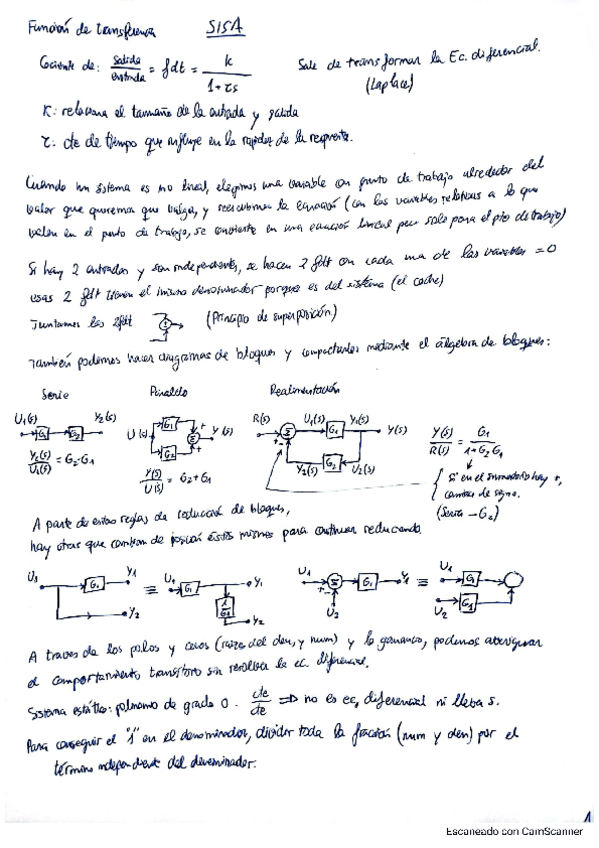 Función de transferencia SISA
Cociente de: salida/entrada = fdt = k/(1+τs) Sale de transformar la Ec. diferencial.
(Laplace)
K: relaciona el tamaño de la entrada y salida
τ: cte de tiempo que influye en la rapidez de la respuesta.
Cuando un sistema es no lineal, elegimos una variable con punto de trabajo alrededor del
valor que queremos que valga, y la ecuación (con las variables relativas a lo que
valen en el punto de trabajo, se convierte en una ecuación lineal pero solo para el pto de trabajo)
Si hay 2 entradas y son independientes, se hacen 2 fdt con cada una de las variables = 0
esas 2 fdt tienen el mismo denominador porque es del sistema (el coche)
Juntamos las 2fdt Σ (Principio de superposición)
También podemos hacer diagramas de bloques y compactarlos mediante el álgebra de bloques:
Serie Paralelo Realimentación
U1(s) G1 G2 Y2(s) U(s) G1 G2 + + Σ Y(s) R(s) Σ U1(s) G1 Y1(s) Y(s) Y(s)/R(s) = G1/(1+G2G1)
Y2(s)/U1(s) = G2·G1 Y(s)/U(s) = G2+G1 Y2(s) G2 U2(s)
Si en el sumatorio hay +,
cambia de signo.
(Sería -G2)
A parte de estas reglas de reducción de bloques,
hay otras que cambian de posición éstos mismos para continuar reduciendo.
U1 G1 Y1 Y2 ≡ U1 G1 Y1 1/G1 Y2 U1 Σ + - G1 Y1 U2 ≡ U1 G1 U2 G1
A través de los polos y ceros (raíces del den, y num) y la ganancia, podemos averiguar
el comportamiento transitorio sin resolver la ec. diferencial.
Sistema estático: polinomio de grado 0. cte/cte ⇒ no es ec. diferencial ni lleva s.
Para conseguir el "1" en el denominador, dividir toda la fracción (num y den) por el
término independiente del denominador.
1
Escaneado con CamScanner